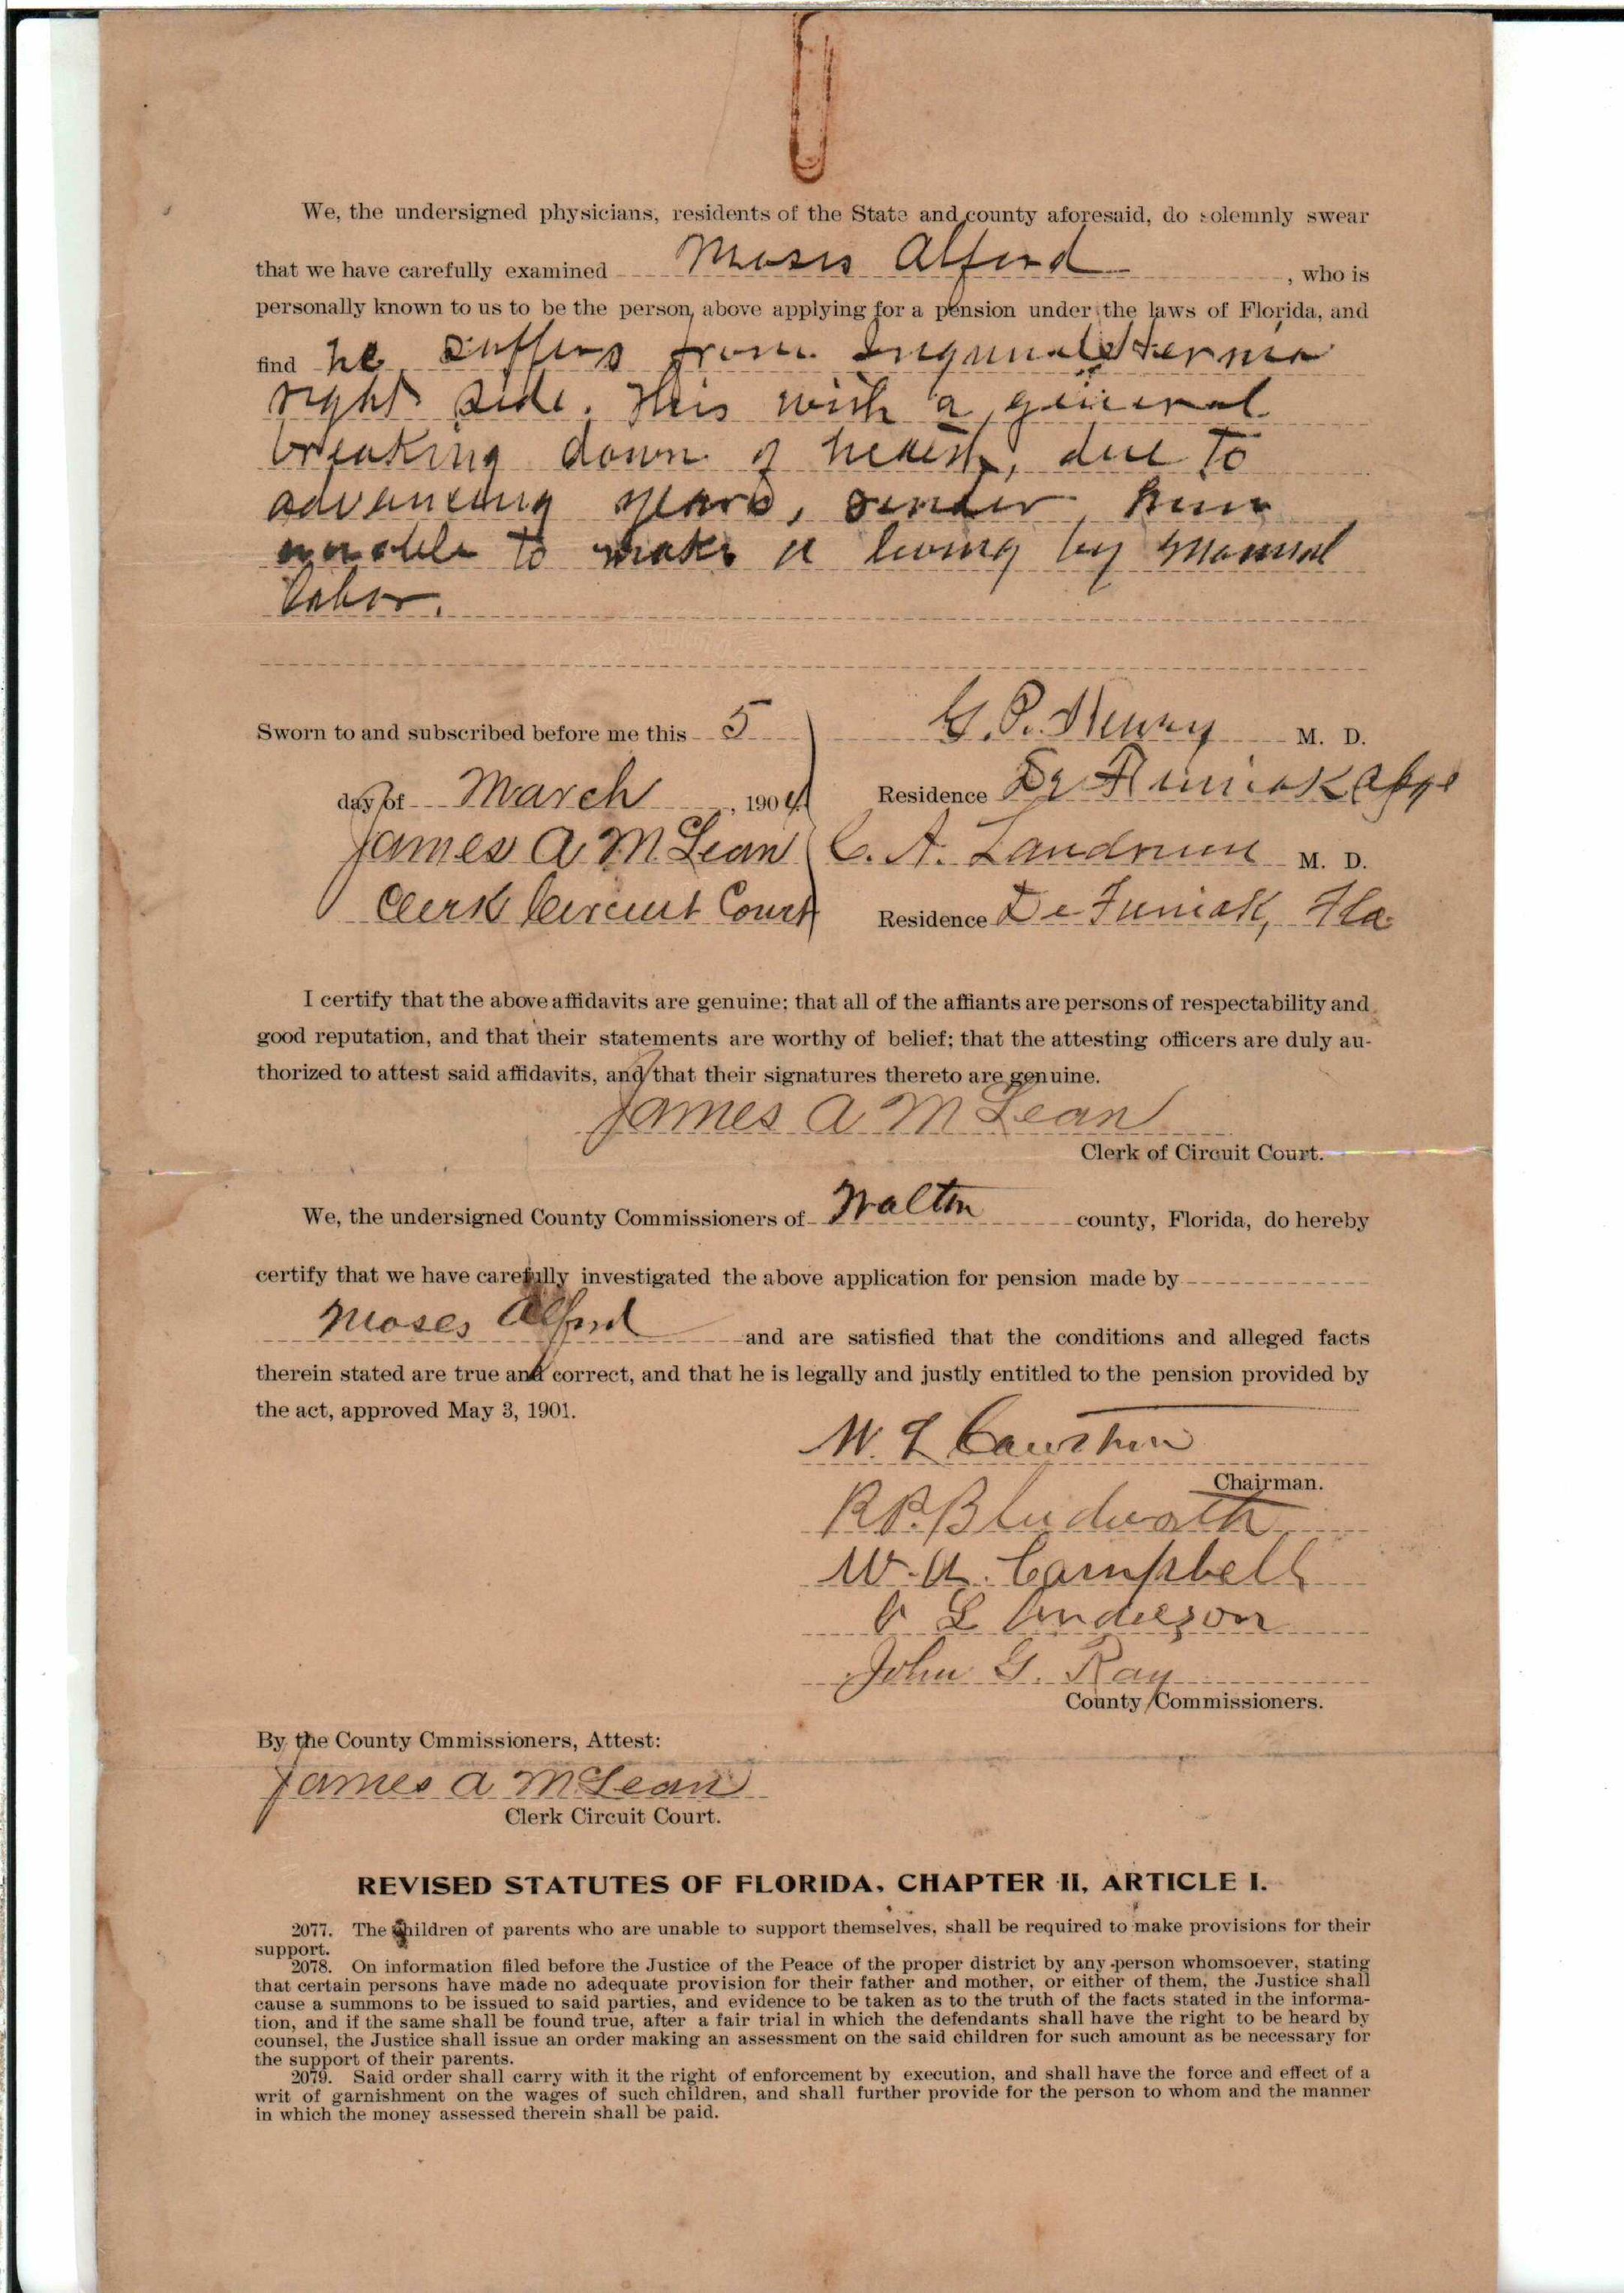 We, the undersigned physicians, residents of the State and county aforesaid, do solemnly swear
that we have carefully examined Moses Alford, who is
personally known to us to be the person, above applying for a pension under the laws of Florida, and
find he suffers from Inguinal Hernia
right side. This with a general
breaking down of health, due to
advancing years, render him
unable to make a living by manual
labor.
Sworn to and subscribed before me this 5
day of March, 1904
James A McLean
Clerk Circuit Court
G. P. Henry M. D.
Residence De Funiak
C. A. Landrum M. D.
Residence De Funiak, Fla
I certify that the above affidavits are genuine; that all of the affiants are persons of respectability and
good reputation, and that their statements are worthy of belief; that the attesting officers are duly au-
thorized to attest said affidavits, and that their signatures thereto are genuine.
James A McLean
Clerk of Circuit Court.
We, the undersigned County Commissioners of Walton county, Florida, do hereby
certify that we have carefully investigated the above application for pension made by
Moses Alford and are satisfied that the conditions and alleged facts
therein stated are true and correct, and that he is legally and justly entitled to the pension provided by
the act, approved May 3, 1901.
W. L
Chairman.
R. P. Bludworth
W. A. Campbell
L Anderson
John G. Ray
County Commissioners.
By the County Cmmissioners, Attest:
James A McLean
Clerk Circuit Court.
REVISED STATUTES OF FLORIDA, CHAPTER II, ARTICLE I.
2077. The children of parents who are unable to support themselves, shall be required to make provisions for their
support.
2078. On information filed before the Justice of the Peace of the proper district by any person whomsoever, stating
that certain persons have made no adequate provision for their father and mother, or either of them, the Justice shall
cause a summons to be issued to said parties, and evidence to be taken as to the truth of the facts stated in the informa-
tion, and if the same shall be found true, after a fair trial in which the defendants shall have the right to be heard by
counsel, the Justice shall issue an order making an assessment on the said children for such amount as be necessary for
the support of their parents.
2079. Said order shall carry with it the right of enforcement by execution, and shall have the force and effect of a
writ of garnishment on the wages of such children, and shall further provide for the person to whom and the manner
in which the money assessed therein shall be paid.